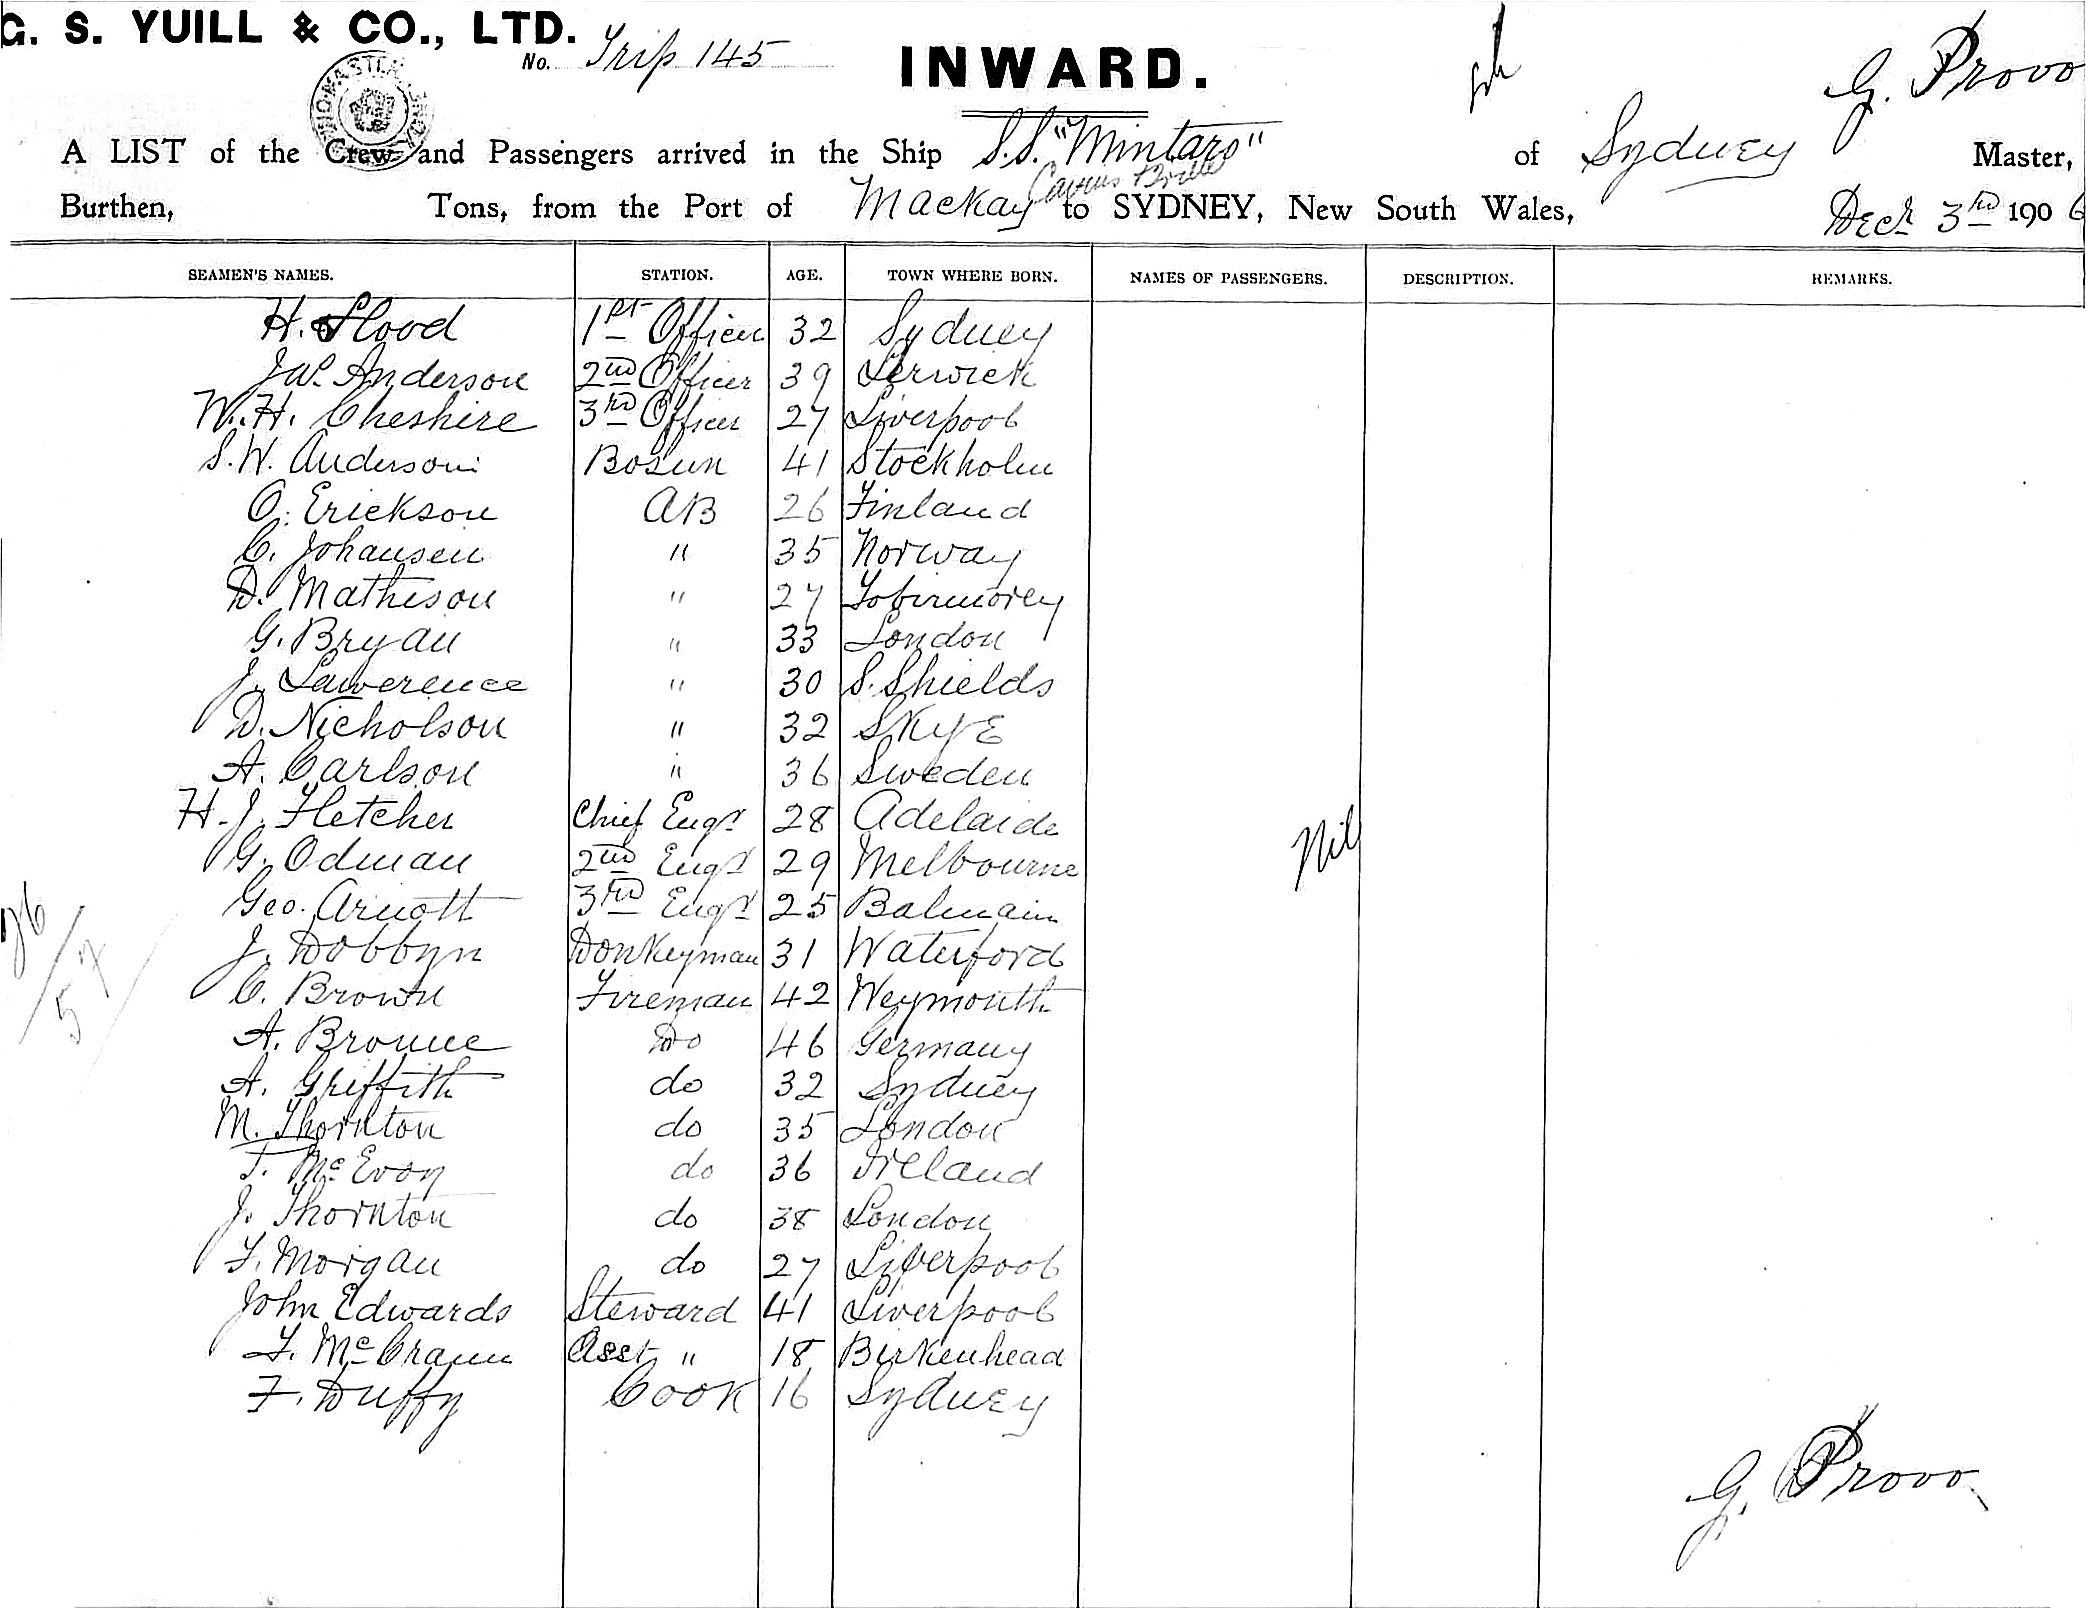 G. S. YUILL & CO., LTD.
No. Trip 145
INWARD.
G. Provo
A LIST of the Crew and Passengers arrived in the Ship S.S. "Mintaro" of Sydney Master,
Burthen, Tons, from the Port of Mackay to SYDNEY, New South Wales, Decr 3rd 1906
SEAMEN'S NAMES. STATION. AGE. TOWN WHERE BORN. NAMES OF PASSENGERS. DESCRIPTION. REMARKS.
H. Flood 1st Officer 32 Sydney
Jas. Anderson 2nd Officer 39 Lerwick
W. H. Cheshire 3rd Officer 27 Liverpool
S. W. Anderson Bosun 41 Stockholm
O. Erickson AB 26 Finland
C. Johansen " 35 Norway
D. Matheson " 27 Tobirmorey
G. Bryan " 33 London
J. Lawerence " 30 S. Shields
D. Nicholson " 32 Skye
A. Carlson " 36 Sweden
H. J. Fletcher Chief Engr 28 Adelaide
Nil
G. Odman 2nd Engr 29 Melbourne
Geo. Arnott 3rd Engr 25 Balmain
J. Dobbyn Donkeyman 31 Waterford
C. Brown Fireman 42 Weymouth
A. Broune Do 46 Germany
A. Griffith do 32 Sydney
M. Thornton do 35 London
T. McEvoy do 36 Ireland
J. Thornton do 38 London
T. Morgan do 27 Liverpool
John Edwards Steward 41 Liverpool
T. McCrann Asst " 18 Birkenhead
F. Duffy Cook 16 Sydney
G. Provo